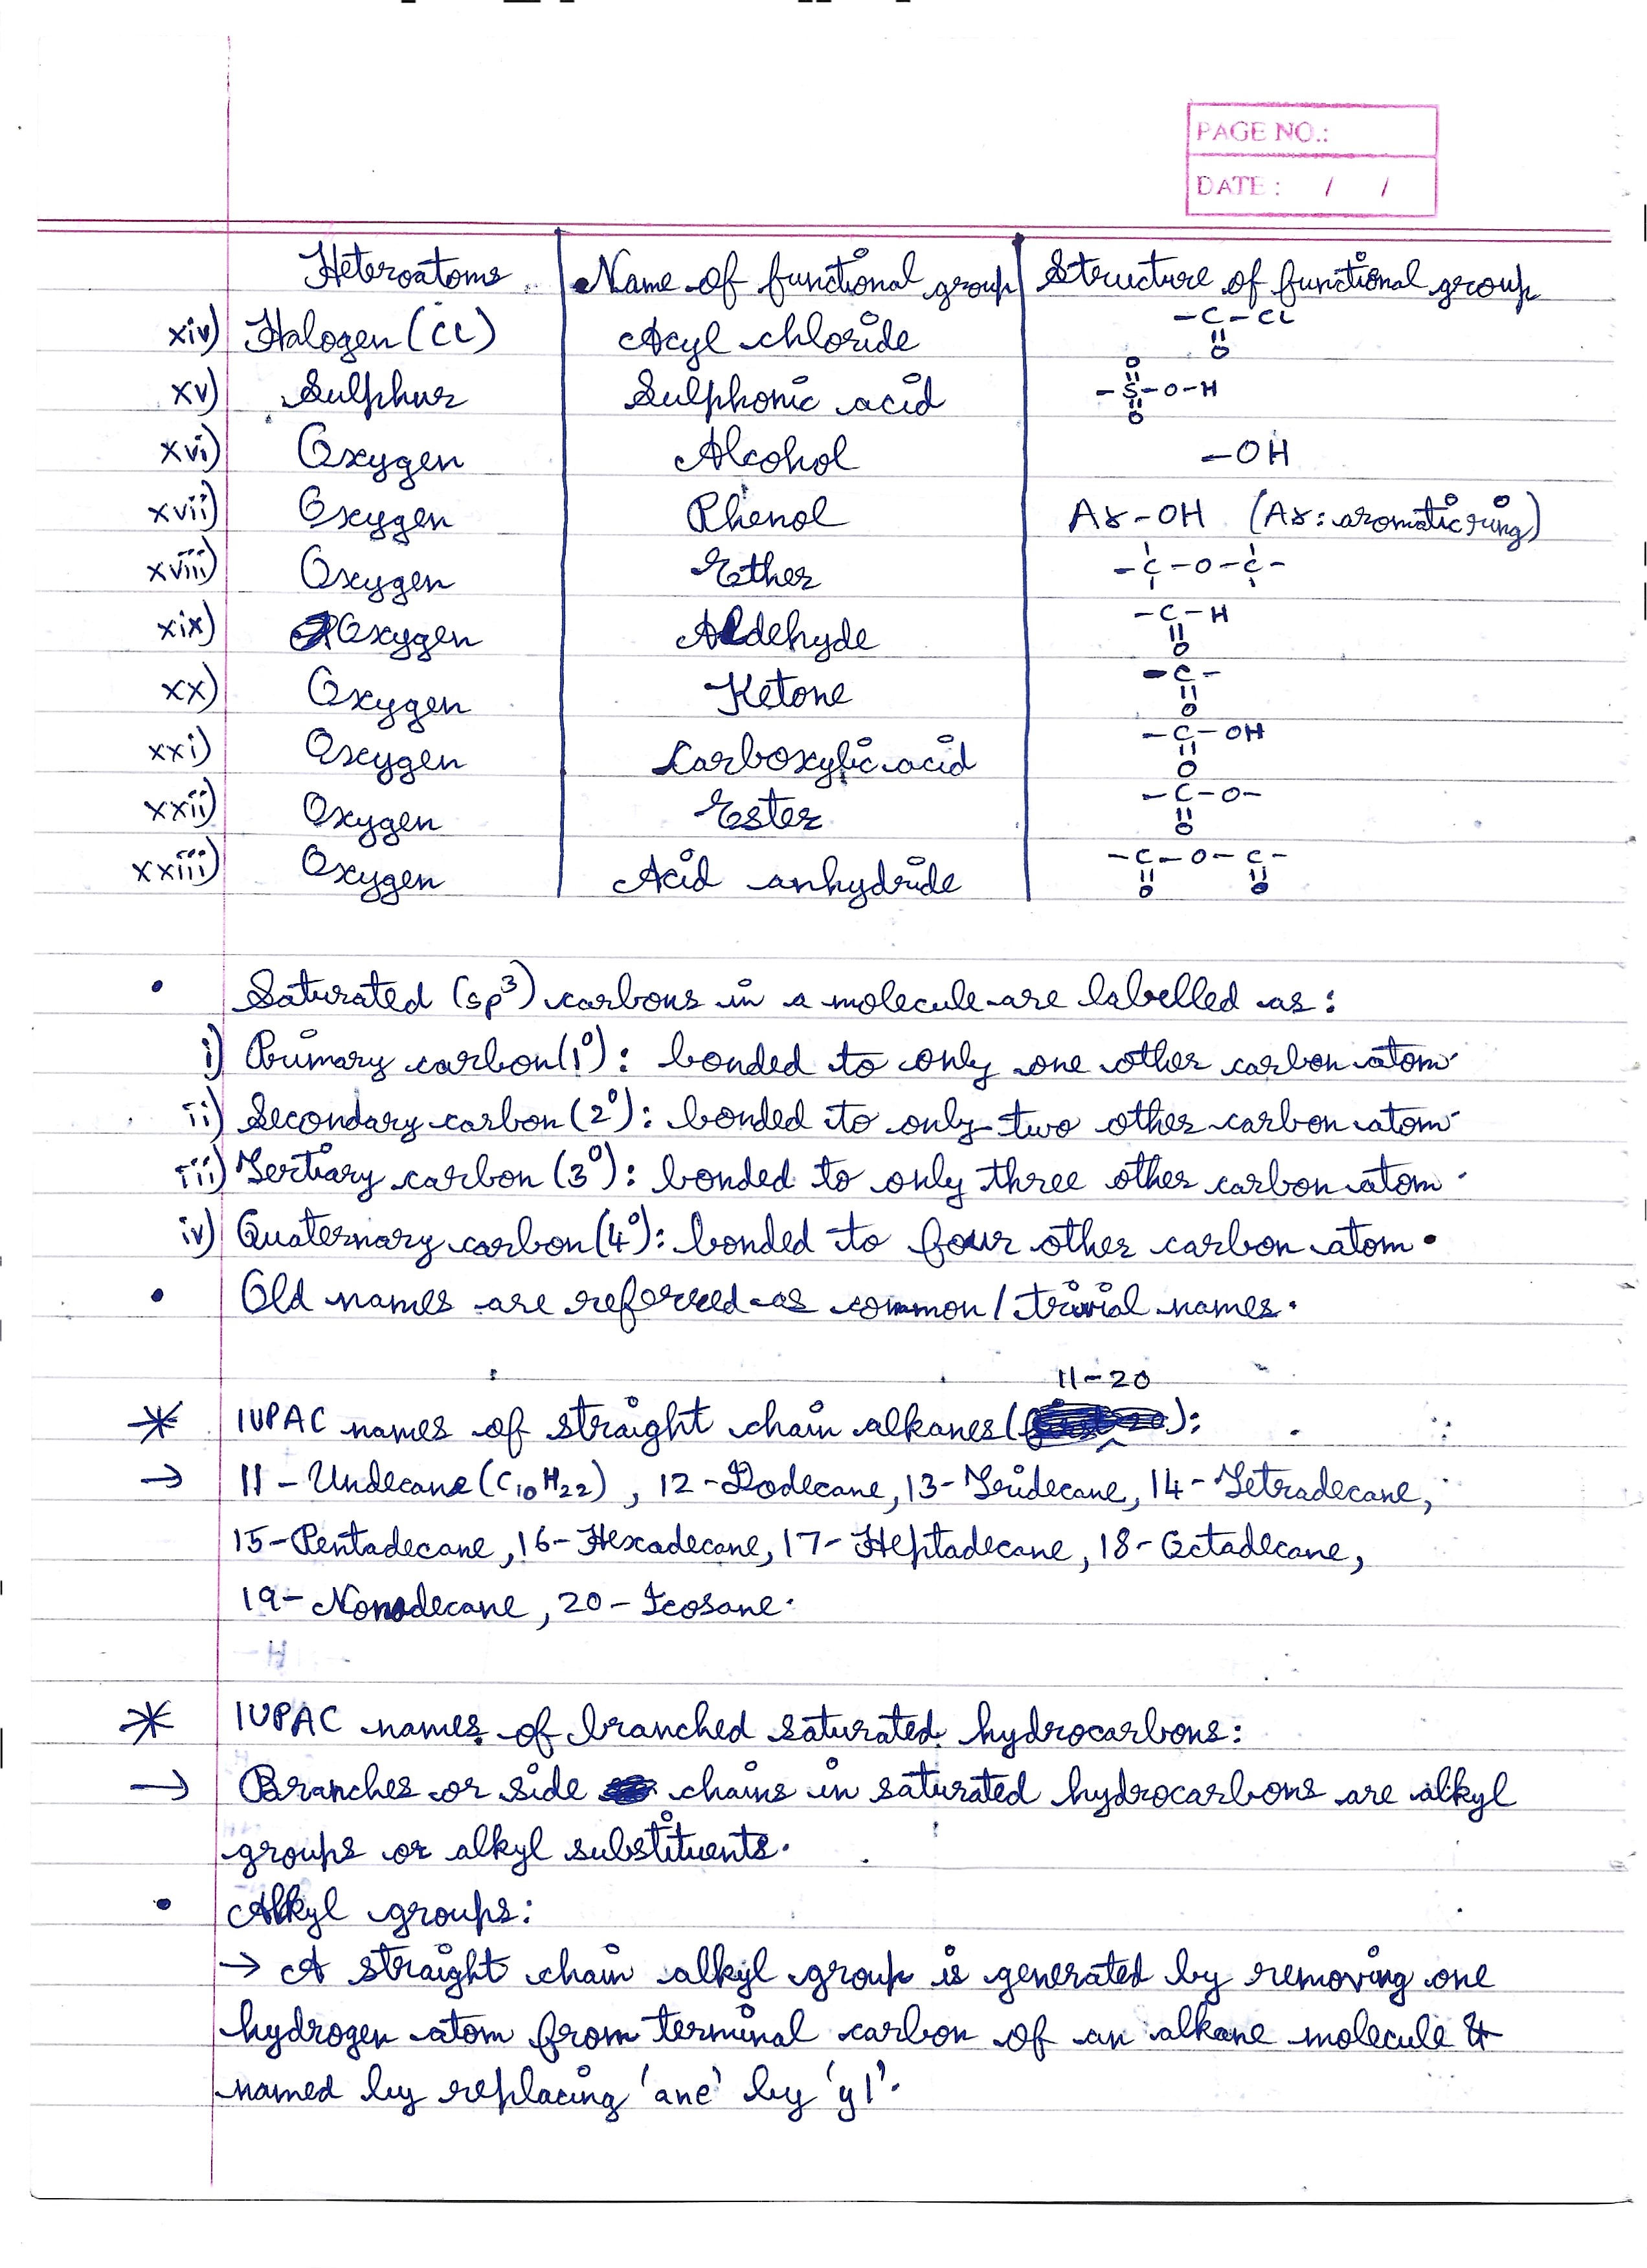 PAGE NO.:
DATE : / /
Heteroatoms Name of functional group Structure of functional group
xiv) Halogen (Cl) Acyl chloride -C-Cl
||
O
xv) Sulphur Sulphonic acid O
||
-S-O-H
||
O
xvi) Oxygen Alcohol -OH
xvii) Oxygen Phenol Ar-OH (Ar: aromatic ring)
xviii) Oxygen Ether -C-O-C-
xix) Oxygen Aldehyde -C-H
||
O
xx) Oxygen Ketone -C-
||
O
xxi) Oxygen Carboxylic acid -C-OH
||
O
xxii) Oxygen Ester -C-O-
||
O
xxiii) Oxygen Acid anhydride -C-O-C-
|| ||
O O
• Saturated (sp³) carbons in a molecule are labelled as:
i) Primary carbon(1⁰): bonded to only one other carbon atom.
ii) Secondary carbon (2⁰): bonded to only two other carbon atom.
iii) Tertiary carbon (3⁰): bonded to only three other carbon atom.
iv) Quaternary carbon(4⁰): bonded to four other carbon atom.
• Old names are referred as common / trivial names.
11-20
* IUPAC names of straight chain alkanes ( ):
→ 11 - Undecane (C₁₀H₂₂), 12 - Dodecane, 13 - Tridecane, 14 - Tetradecane,
15 - Pentadecane, 16 - Hexadecane, 17 - Heptadecane, 18 - Octadecane,
19 - Nonadecane, 20 - Icosane.
* IUPAC names of branched saturated hydrocarbons:
→ Branches or side chains in saturated hydrocarbons are alkyl
groups or alkyl substituents.
• Alkyl groups:
→ A straight chain alkyl group is generated by removing one
hydrogen atom from terminal carbon of an alkane molecule &
named by replacing 'ane' by 'yl'.